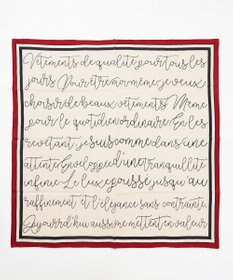 Vêtements de qualité, pour tous les
jours Pour être moi-même, je veux
choisir de beaux vêtements Même
pour le quotidien ordinaire En les
revêtant, je suis comme dans une
attente d'une tranquillité
infinie Le luxe poussé jusqu'au
raffinement et l'élégance sans contrainte
Aujourd'hui aussi me mettent en valeur